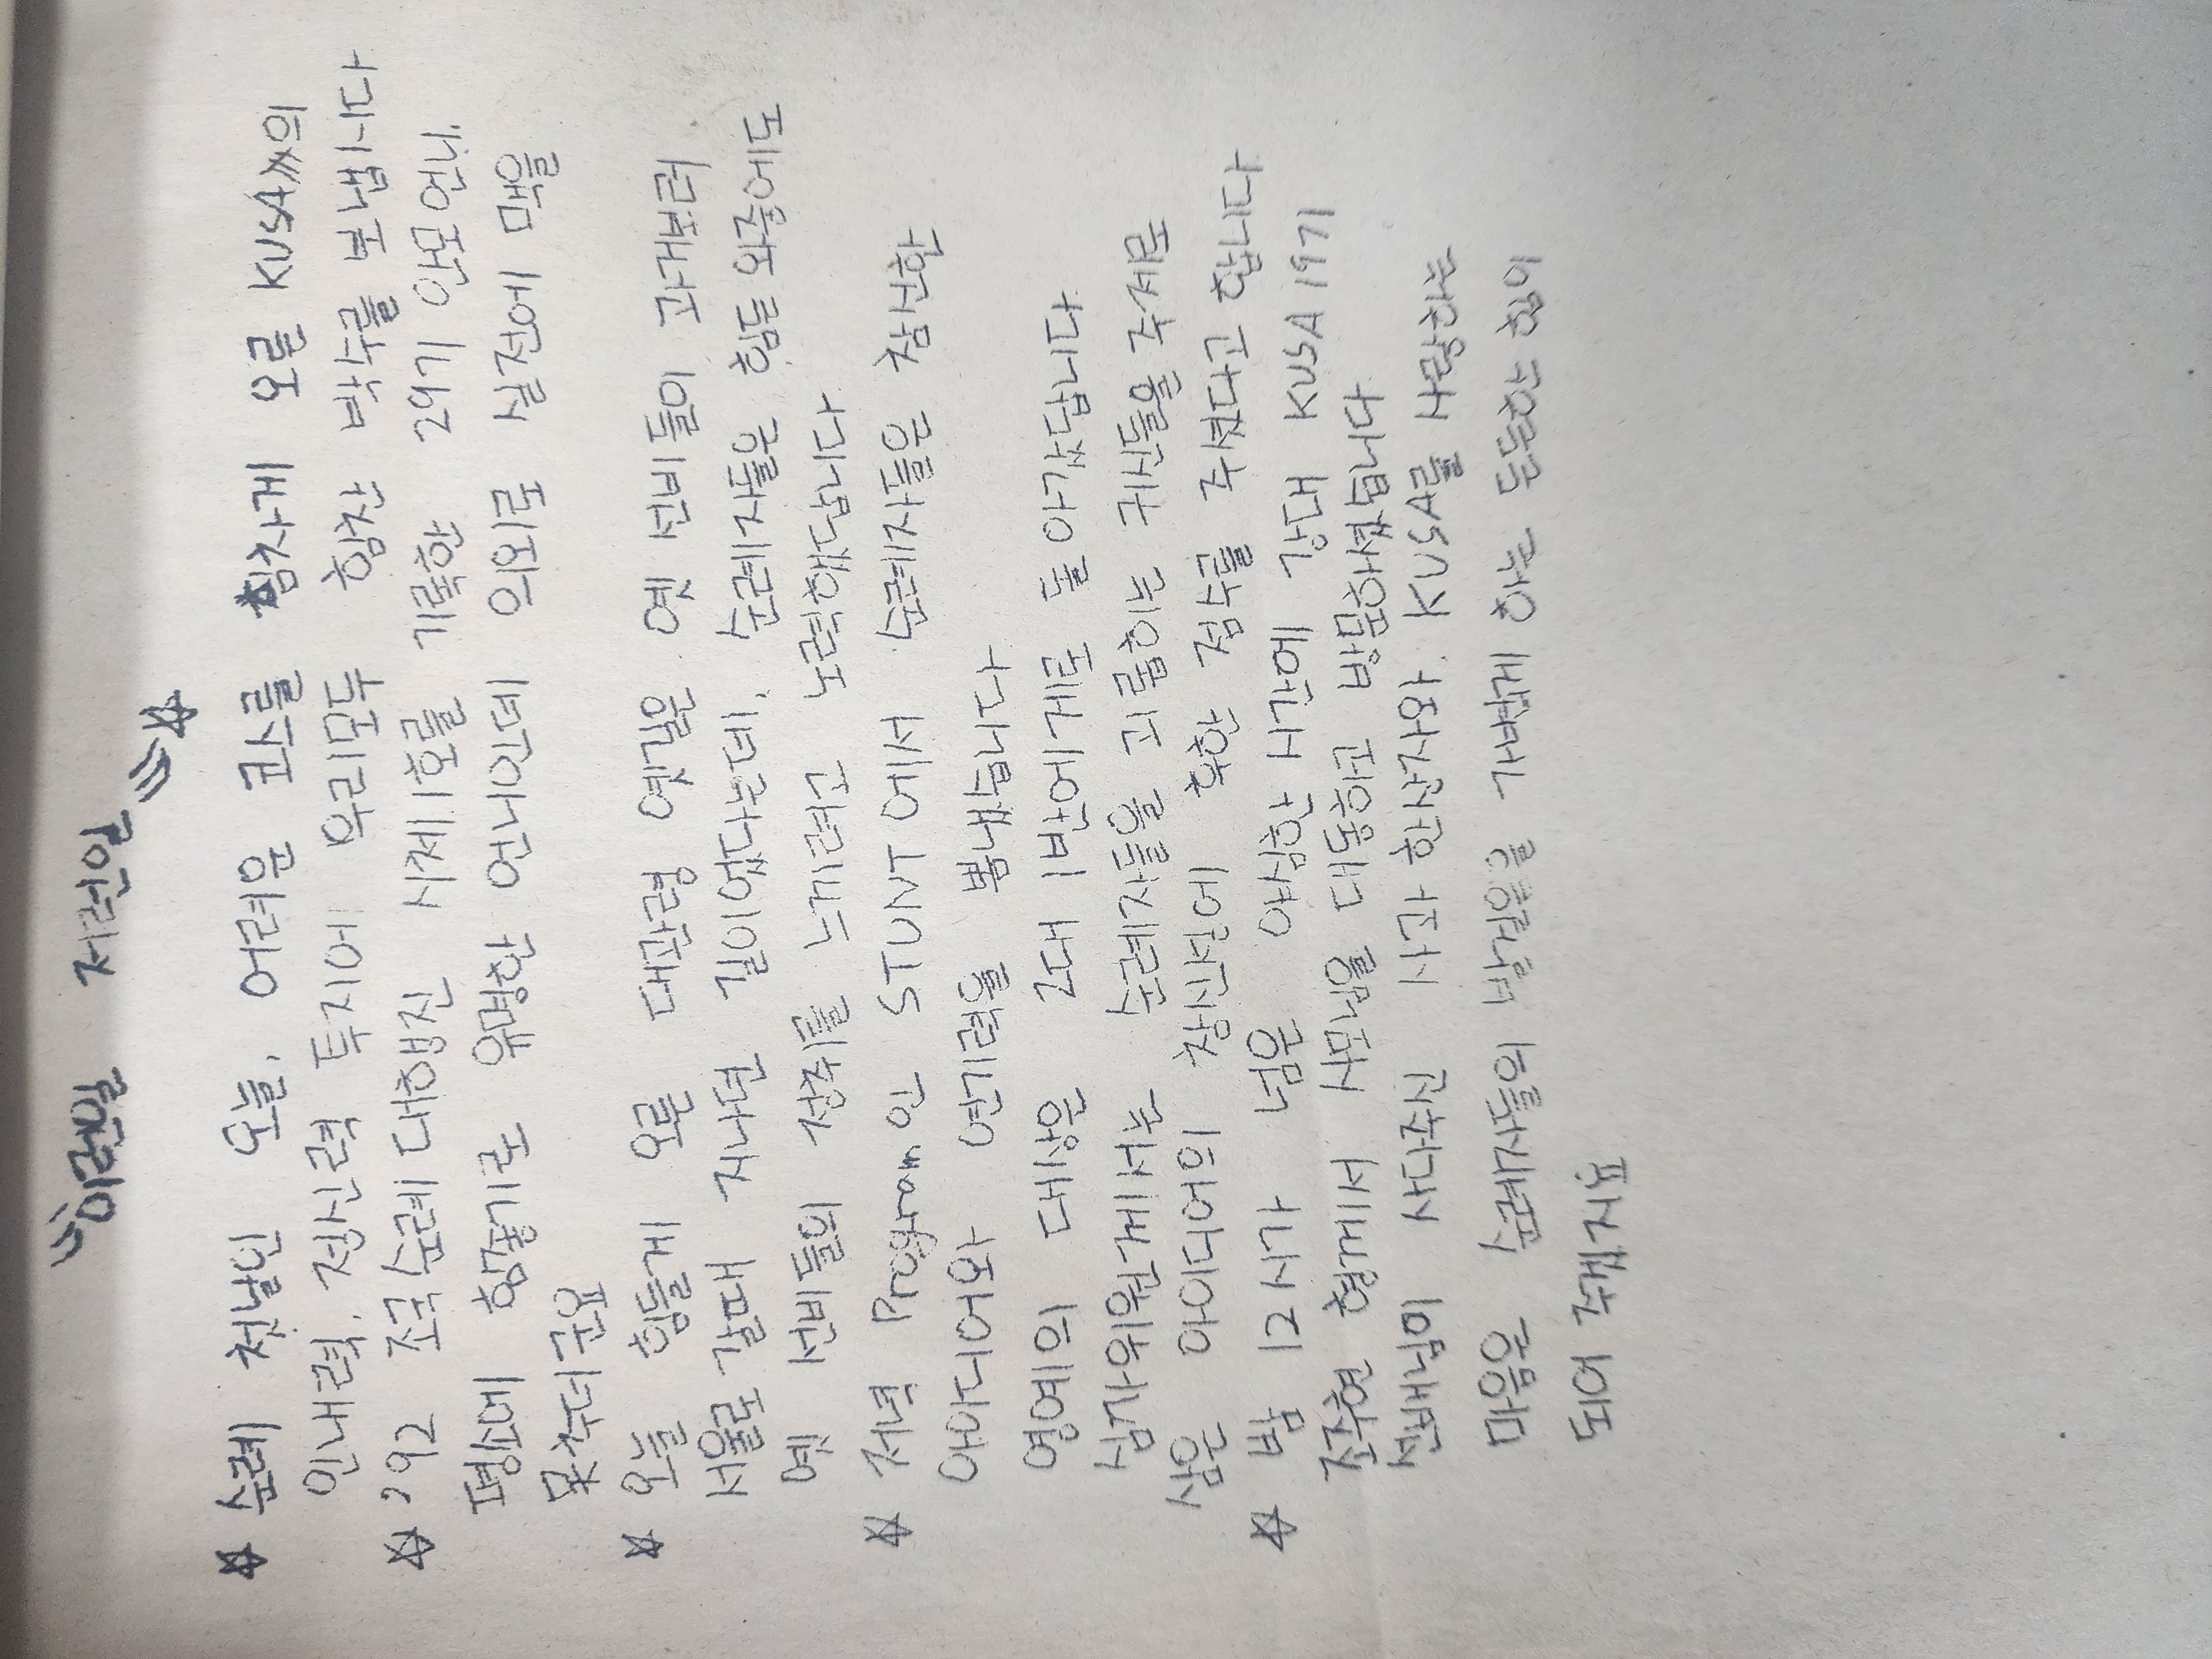 이런일 저런일
☆ 순례 첫날인 오늘, 어려운 코스를 힘차게 오른 KUSA의
인내력, 정신력 투지에 우리모두 힘찬 박수를 보냅시다
☆ '92 조국순례대행진 시제1호를 기록한 29기 안모언니.
평소에 향좋기로 유명한 언니인데 의외로 실전에 맥을
못추더군요
☆ 오늘 힘들게 오른 대관령 옛길은 옛 선비들이 과거보러
서울로 갈때 지나던 길이었다는데, 순례자들은 힘든 와중에도
옛 선비들의 정취를 느끼려고 노력했답니다
☆ 저녁 Program인 STUNT에서 순례자들은 참신한
아이디어와 연기력을 뽐냈습니다
영예의 대상은 2대 1반에게로 돌아갔답니다
심사위원께서는 순례자들을 괴롭히는 귀신들을 주제로
삼은 아이디어의 참신성에 후한 점수를 주셨다고 합니다
☆ 밤 12시가 넘은 야심한 시간에 강대 KUSA 1971
조주현 형께서 사모님을 대동하고 방문하셨습니다
선배님이 사다주신 사과 한상자와 KUSA를 사랑하는
마음은 순례자들의 발걸음을 가볍게 하는 든든한 힘이
되어 주겠지요